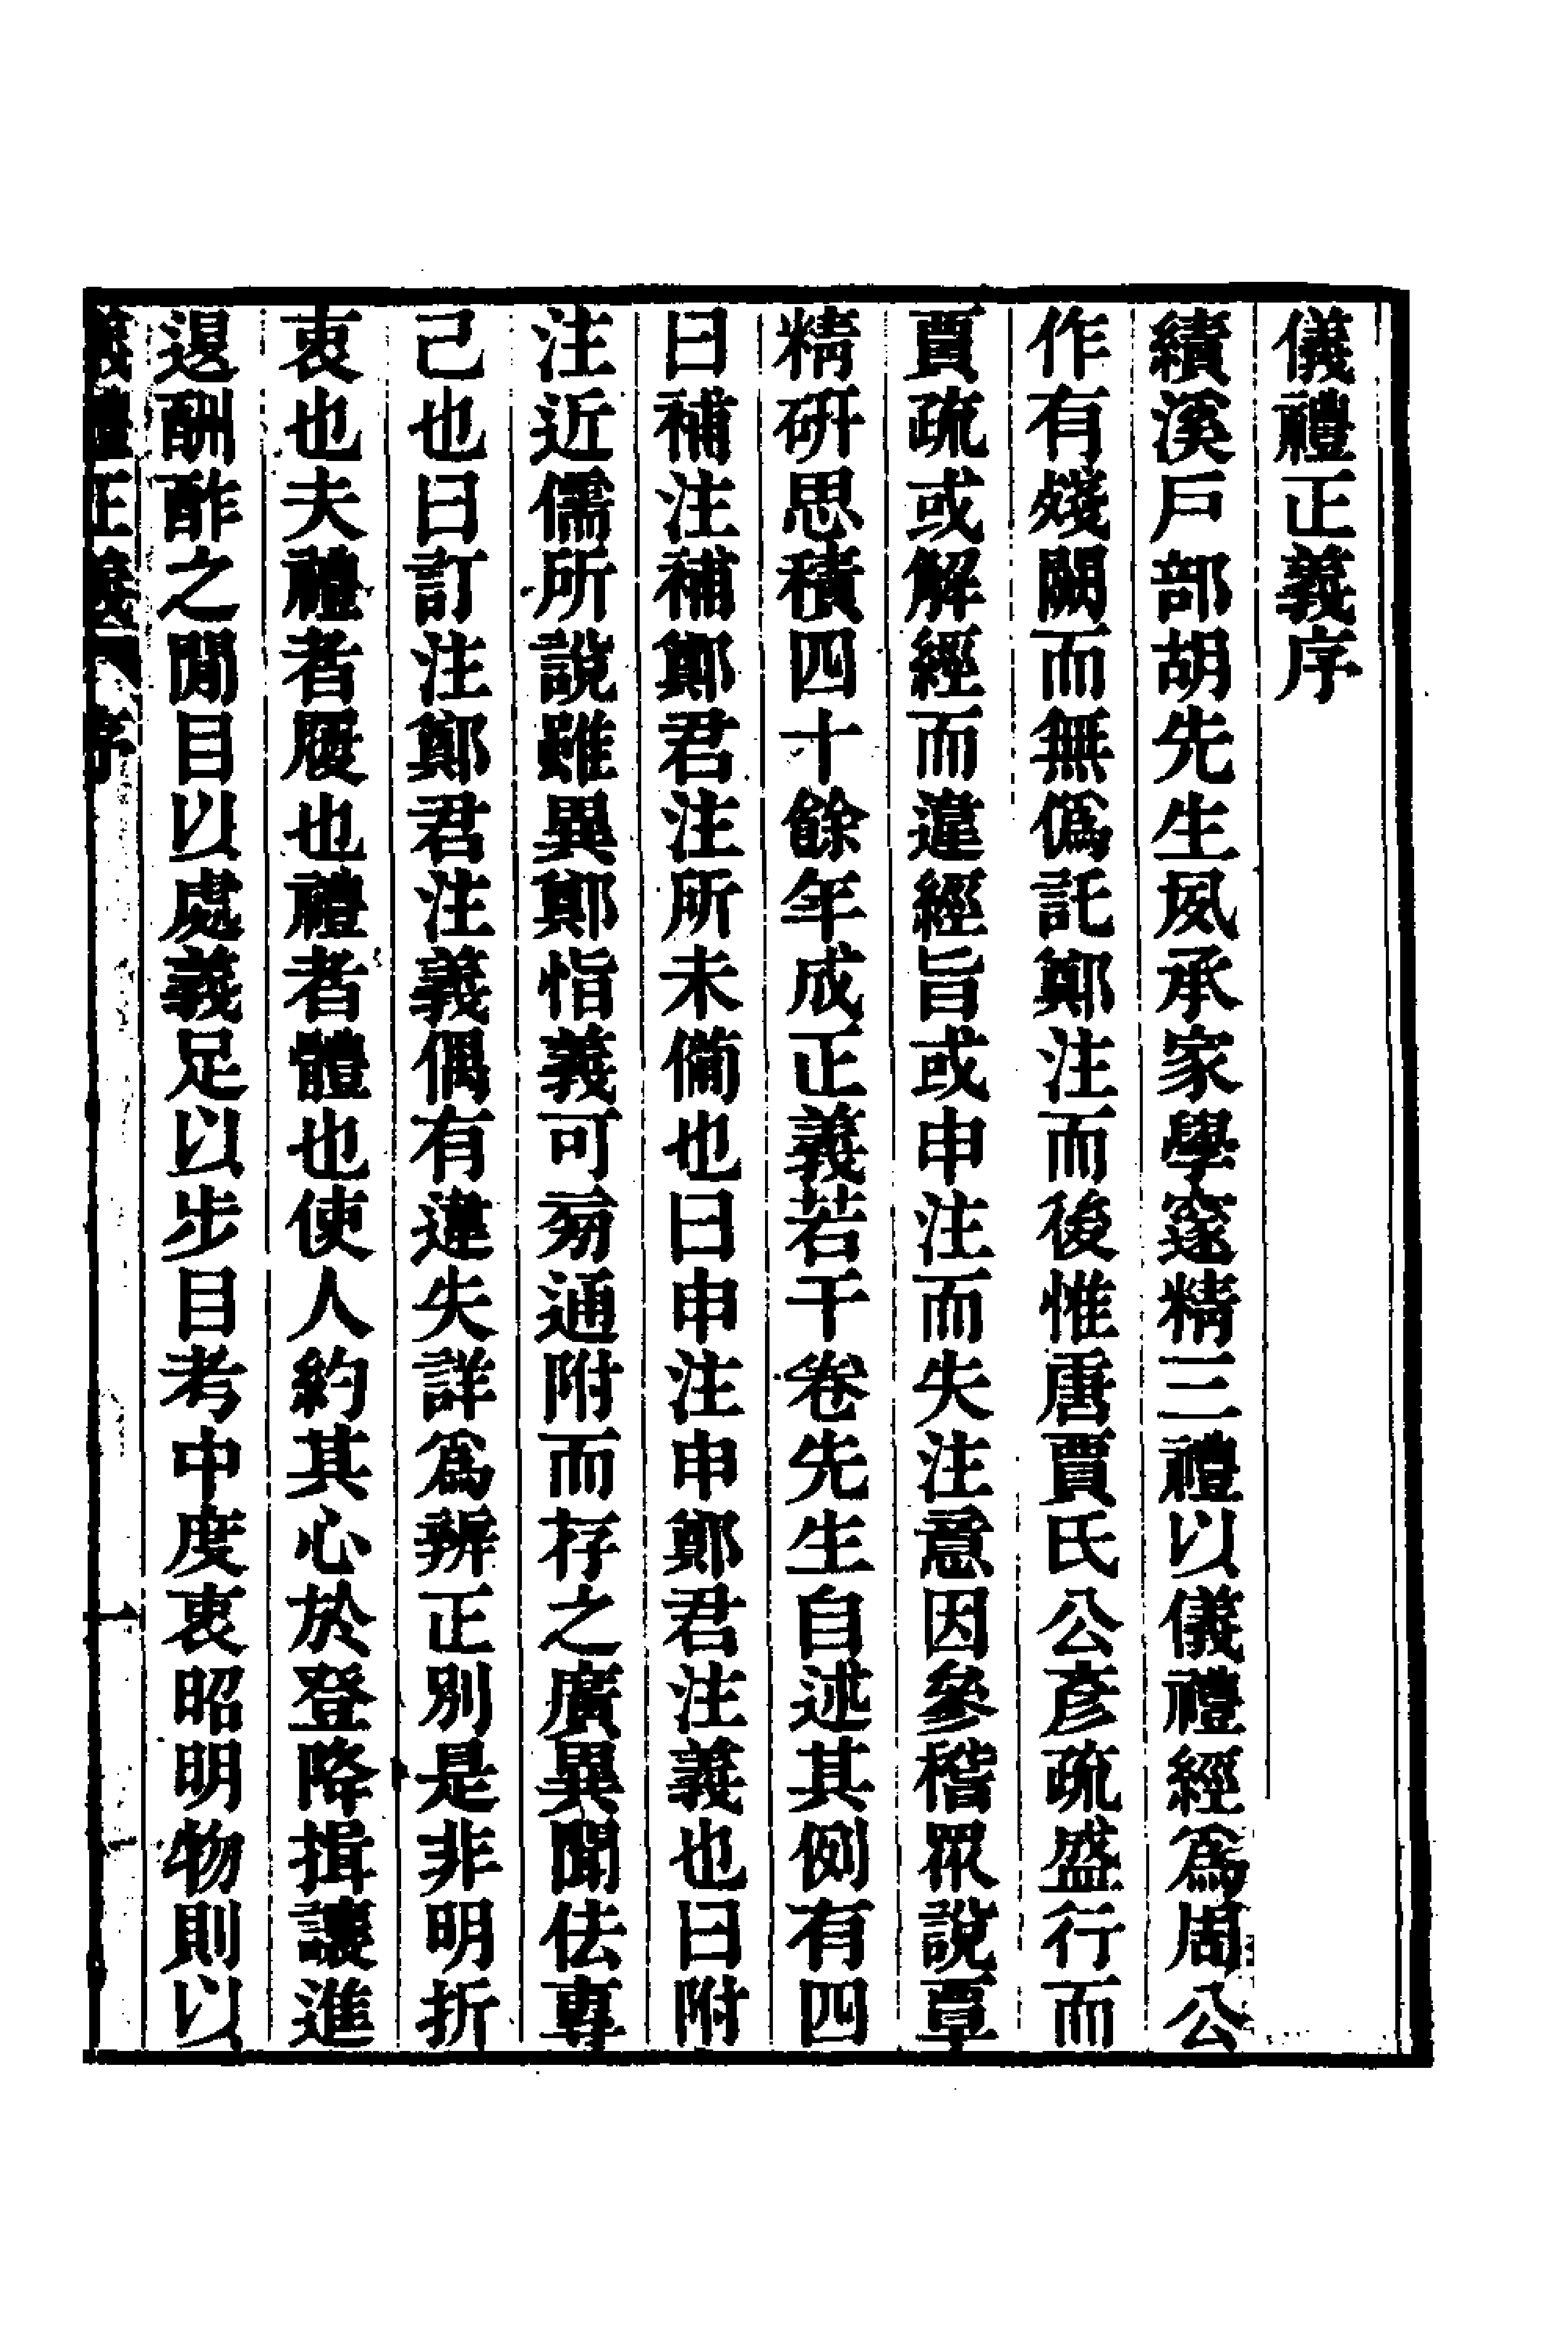 儀禮正義序
績溪戶部胡先生夙承家學邃精三禮以儀禮經爲周公
作有殘闕而無僞託鄭注而後惟唐賈氏公彥疏盛行而
賈疏或解經而違經旨或申注而失注意因參稽眾說覃
精研思積四十餘年成正義若干卷先生自述其例有四
曰補注補鄭君注所未備也曰申注申鄭君注義也曰附
注近儒所說雖異鄭恉義可旁通附而存之廣異聞佉專
己也曰訂注鄭君注義偶有違失詳爲辨正別是非明折
衷也夫禮者履也禮者體也使人約其心於登降揖讓進
退酬酢之閒目以處義足以步目考中度衷昭明物則以
儀禮正義 序 一